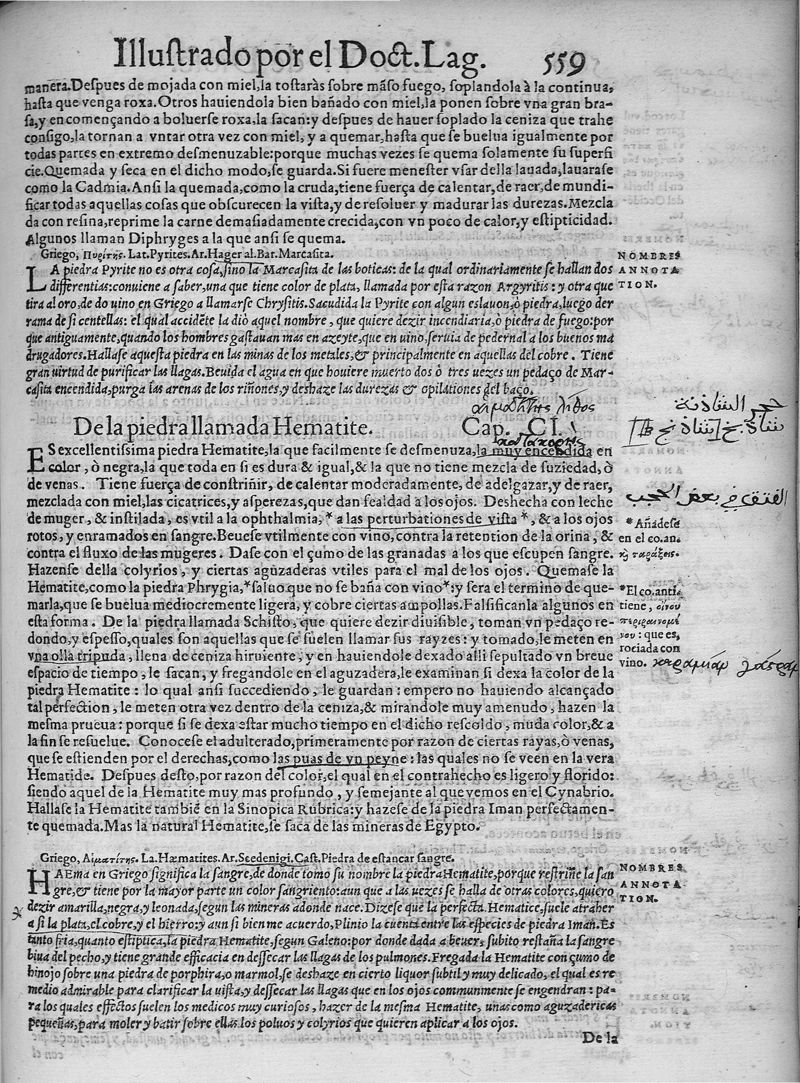 Illuſtrado por el Doct. Lag. 559
manera. Deſpues de mojada con miel, la toſtaràs ſobre mãſo fuego, ſoplandola à la continua,
haſta que venga roxa. Otros hauiendola bien bañado con miel, la ponen ſobre vna gran bra-
ſa, y en començando a boluerſe roxa, la ſacan: y deſpues de hauer ſoplado la ceniza que trahe
conſigo, la tornan a vntar otra vez con miel, y a quemar, haſta que ſe buelua igualmente por
todas partes en extremo deſmenuzable: porque muchas vezes ſe quema ſolamente ſu ſuperfi
cie. Quemada y ſeca en el dicho modo, ſe guarda. Si fuere meneſter vſar della lauada, lauaraſe
como la Cadmia. Anſi la quemada, como la cruda, tiene fuerça de calentar, de raer, de mundi-
ficar todas aquellas coſas que obſcurecen la viſta, y de reſoluer y madurar las durezas. Mezcla
da con reſina, reprime la carne demaſiadamente crecida, con vn poco de calor, y eſtipticidad.
Algunos llaman Diphryges a la que anſi ſe quema.
Griego, Πυρίτης. Lat. Pyrites. Ar. Hager al. Bar. Marcaſita.
NOMBRES
ANNOTA
TION.
LA piedra Pyrite no es otra coſa, ſino la Marcaſita de las boticas: de la qual ordinariamente ſe hallan dos
differentias: conuiene a ſaber, vna que tiene color de plata, llamada por eſta razon Argyritis: y otra que
tira al oro, de do uino en Griego a llamarſe Chryſitis. Sacudida la Pyrite con algun eslauon, ò piedra, luego der
rama de ſi centellas: el qual accidẽte la diò aquel nombre, que quiere dezir incendiaria, ò piedra de fuego: por
que antiguamente, quando los hombres gaſtauan mas en azeyte, que en uino, ſeruia de pedernal a los buenos ma
drugadores. Hallaſe aqueſta piedra en las minas de los metales, & principalmente en aquellas del cobre. Tiene
gran uirtud de purificar las llagas. Beuida el agua en que houiere muerto dos ò tres uezes un pedaço de Mar-
caſita encendida, purga las arenas de los riñones, y deshaze las durezas & opilationes del baço.
αἱματίτης λίθος
De la piedra llamada Hematite. Cap. CI.
حجر الشاذنة
ES excellentiſsima piedra Hematite, la que facilmente ſe deſmenuza, la muy encendida en
color, ò negra, la que toda en ſi es dura & igual, & la que no tiene mezcla de ſuziedad, ò
de venas. Tiene fuerça de conſtriñir, de calentar moderadamente, de adelgazar, y de raer,
mezclada con miel, las cicatrices, y aſperezas, que dan fealdad a los ojos. Deshecha con leche
de muger, & inſtilada, es vtil a la ophthalmia, * a las perturbationes de viſta *, & a los ojos
rotos, y enramados en ſangre. Beueſe vtilmente con vino, contra la retention de la orina, &
contra el fluxo de las mugeres. Daſe con el çumo de las granadas a los que eſcupen ſangre.
Hazenſe della colyrios, y ciertas aguzaderas vtiles para el mal de los ojos. Quemaſe la
Hematite, como la piedra Phrygia, * ſaluo que no ſe baña con vino *: y ſera el termino de que-
marla, que ſe buelua mediocremente ligera, y cobre ciertas ampollas. Falſificanla algunos en
eſta forma. De la piedra llamada Schiſto, que quiere dezir diuiſible, toman vn pedaço re-
dondo, y eſpeſſo, quales ſon aquellas que ſe ſuelen llamar ſus rayzes: y tomado, le meten en
vna olla tripuda, llena de ceniza hiruiente, y en hauiendole dexado alli ſepultado vn breue
eſpacio de tiempo, le ſacan, y fregandole en el aguzadera, le examinan ſi dexa la color de la
piedra Hematite: lo qual anſi ſuccediendo, le guardan: empero no hauiendo alcançado
tal perfection, le meten otra vez dentro de la ceniza, & mirandole muy amenudo, hazen la
meſma prueua: porque ſi ſe dexa eſtar mucho tiempo en el dicho reſcoldo, muda color, & a
la fin ſe reſuelue. Conoceſe el adulterado, primeramente por razon de ciertas rayas, ò venas,
que ſe eſtienden por el derechas, como las puas de vn peyne: las quales no ſe veen en la vera
Hematide. Deſpues deſto, por razon del color, el qual en el contrahecho es ligero y florido:
ſiendo aquel de la Hematite muy mas profundo, y ſemejante al que vemos en el Cynabrio.
Hallaſe la Hematite tambiẽ en la Sinopica Rubrica: y hazeſe de la piedra Iman perfectamen-
te quemada. Mas la natural Hematite, ſe ſaca de las mineras de Egypto.
* Añadeſe
en el co. an.
ϗ ταράξεις.
* El co. anti.
tiene, οἴνου
: que es,
rociada con
vino.
Griego, Αἱματίτης. La. Hæmatites. Ar. Seedenigi. Caſt. Piedra de eſtancar ſangre.
NOMBRES
ANNOTA
TION.
HAEma en Griego ſignifica la ſangre, de donde tomo ſu nombre la piedra Hematite, porque reſtriñe la ſan
gre, & tiene por la mayor parte un color ſangriento: aun que a las uezes ſe halla de otras colores, quiero
dezir amarilla, negra, y leonada, ſegun las mineras adonde nace. Dizeſe que la perfecta Hematice, ſuele atraher
a ſi la plata, el cobre, y el hierro: y aun ſi bien me acuerdo, Plinio la cuenta entre las eſpecies de piedra Iman. Es
tanto fria, quanto eſtiptica, la piedra Hematite, ſegun Galeno: por donde dada a beuer, ſubito reſtaña la ſangre
biua del pecho, y tiene grande efficacia en deſſecar las llagas de los pulmones. Fregada la Hematite con çumo de
hinojo ſobre una piedra de porphira, o marmol, ſe deshaze en cierto liquor ſubtil y muy delicado, el qual es re
medio admirable para clarificar la uiſta, y deſſecar las llagas que en los ojos communmente ſe engendran: pa-
ra los quales effectos ſuelen los medicos muy curioſos, hazer de la meſma Hematite, unas como aguzadericas
pequeñas, para moler y batir ſobre ellas los poluos y colyrios que quieren aplicar a los ojos.
De la